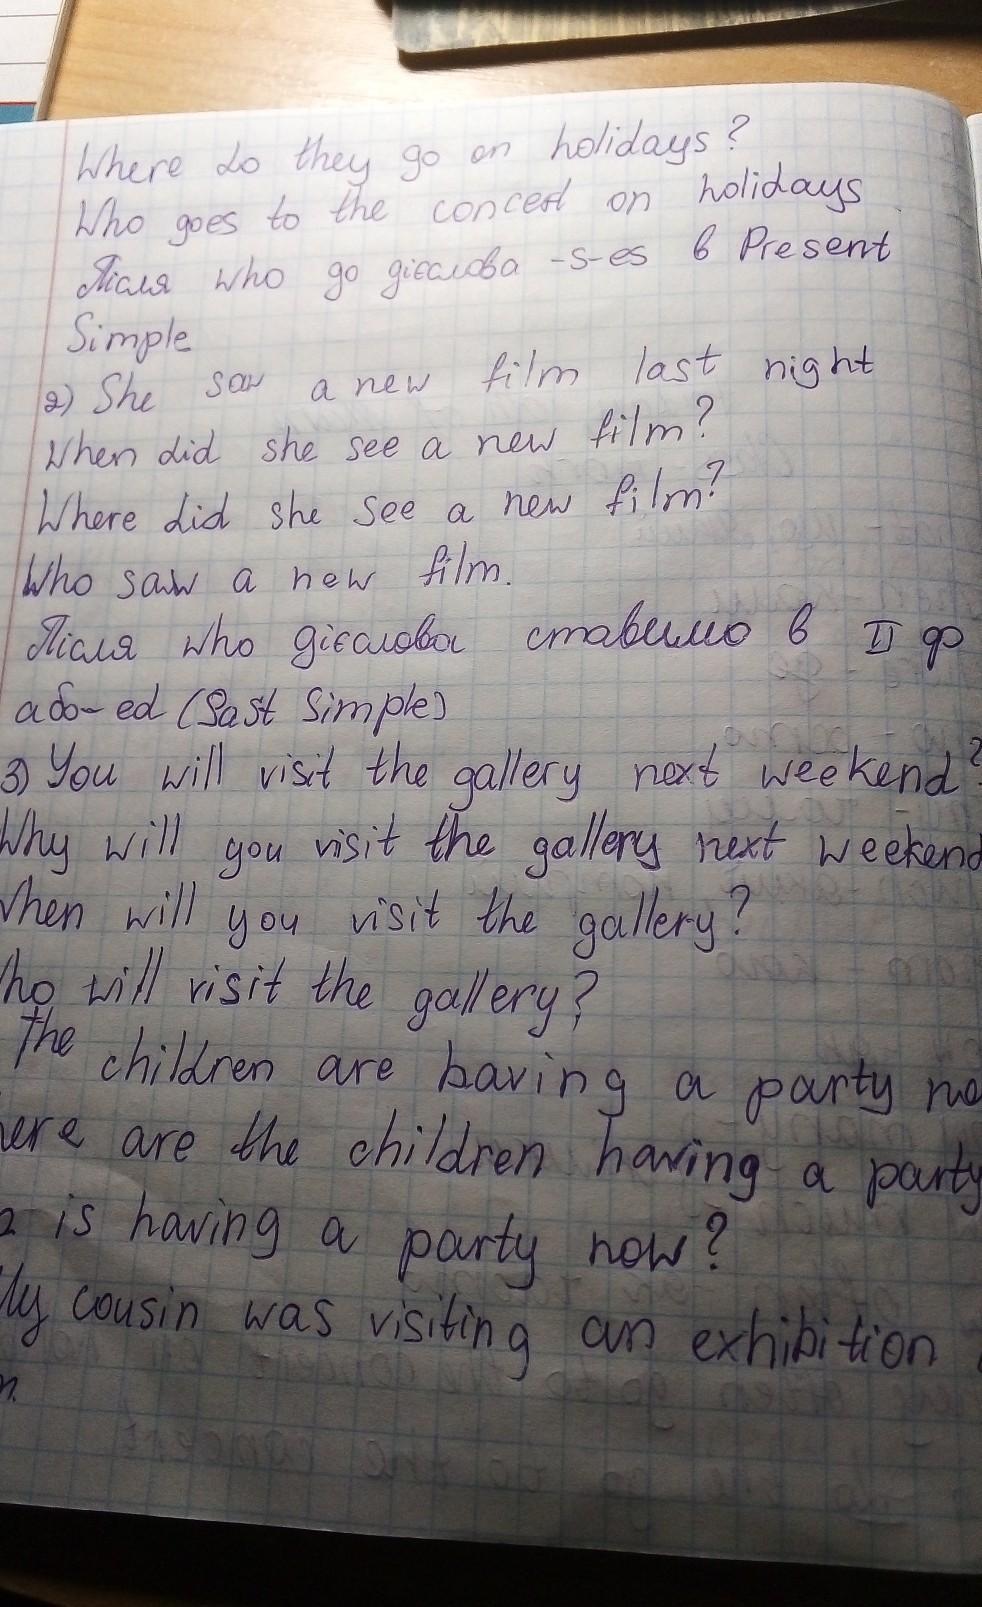 Where do they go on holidays?
Who goes to the concert on holidays
Після who до дієслова -s-es в Present
Simple
2) She saw a new film last night
When did she see a new film?
Where did she see a new film?
Who saw a new film.
Після who дієслова ставимо в II ф
або-ed (Past Simple)
3) You will visit the gallery next weekend?
Why will you visit the gallery next weekend
When will you visit the gallery?
ho will visit the gallery?
The children are having a party no
ere are the children having a party
is having a party now?
My cousin was visiting an exhibition